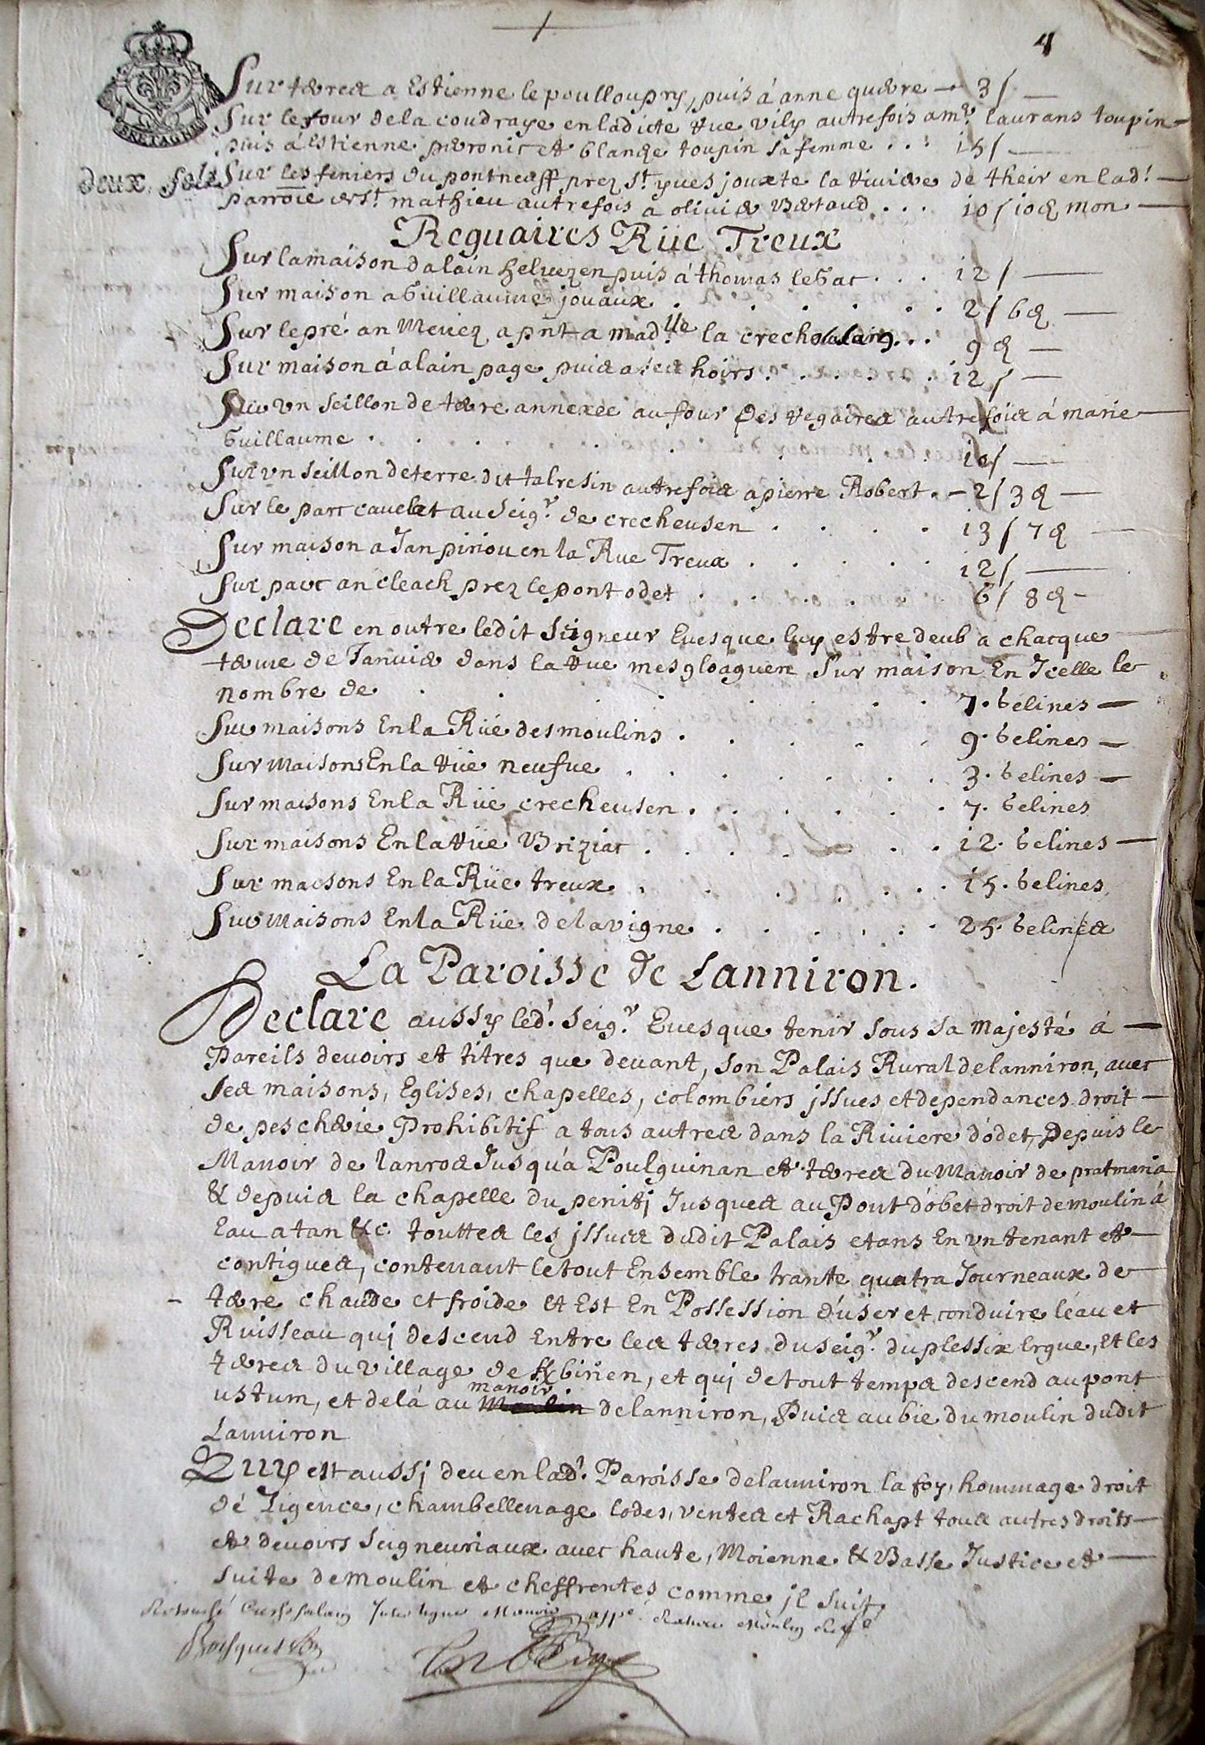 4
BRETAGNE
deux sols
Sur terres a Estienne le poulloupry, puis á anne quere — 3 s —
Sur le four de la coudraye en ladicte rue vily autrefois a mᵉ laurans toupin —
puis a Estienne peronic et blanche toupin sa femme . . . 15 s —
Sur les feniers du pont prez Sᵗ yues jouxte la riviere de their en ladᵗ —
parroie Sᵗ mathieu autrefois a olivier . . . 10 s 10 d mon —
Reguaires Rüe Treux
Sur la maison dalain helvezen puis á thomas le bac . . . 12 s —
Sur maison a Guillaume jouaux . . . . . . 2 s 6 d —
Sur le pré an Mevez apnt a madˡˡᵉ la crecholain . . . 9 d —
Sur maison á alain page puis a ses hoirs . . . . . . 12 s —
Sur vn seillon de terre annexée au four des regaires autrefois á marie —
Guillaume . . . . . . 10 s —
Sur vn seillon de terre dit talresin autrefois a pierre Robert . — 2 s 3 d —
Sur le parc cavelat au seigʳ de crecheusen . . . . 13 s 7 d —
Sur maison a Jan piriou en la Rue Treux . . . . . 12 s —
Sur parc an cleach prez le pont odet . . . . . 6 s 8 d —
Declare en outre ledit Seigneur Euesque luy estre deub a chacque
terme de Janvier dans la rue mesgloaguen Sur maison En Jcelle le
nombre de . . . . . . 7. belines —
Sur maisons En la Rüe des moulins . . . . . 9. belines —
Sur maisons En la rüe neufue . . . . . . 3. belines —
Sur maisons En la Rüe crecheusen . . . . . . 7. belines
Sur maisons En la rüe Briziac . . . . . . 12. belines —
Sur maisons En la Rüe treux . . . . . . 15. belines
Sur maisons En la Rüe de la vigne . . . . . . 25. belines
La Paroisse de Lanniron.
Declare aussy ledᵗ. Seigʳ Euesque tenir sous sa majesté á —
Pareils devoirs et titres que devant, son Palais Rural de lanniron, avec
ses maisons, Eglises, chapelles, colombiers jssues et dependances droit —
de pescherie Prohibitif a tous autres dans la Riviere d'odet, Depuis le
Manoir de lanros Jusqu'a Poulguinan et terres du Manoir de pratmaria
& depuis la chapelle du penitj Jusques au Pont d'obet droit de moulin á
Eau a tan &c. touttes les jssues dudit Palais etans En vn tenant et —
contigues, contenant le tout Ensemble trante quatra Journeaux de
terre chaude et froide et Est En Possession d'user et conduire léau et
Ruisseau quj descend Entre les terres du seigʳ. du plessix Ergue, Et les
terres du village de Kbirien, et quj de tout temps descend au pont
ustum, et delá au manoir de lanniron, Puis au bie du moulin dudit
Lanniron
Luy est aussj deu en ladᵗ. Paroisse de lanniron la foy, hommage droit
dé ligence, chambellenage lodes, ventes et Rachapt tous autres droits —
et devoirs seigneuriaux avec haute, Moienne & Basse Justice et —
suite de moulin et cheffrentes comme jl suit
Interligne Manoir appé. Rature Moulin